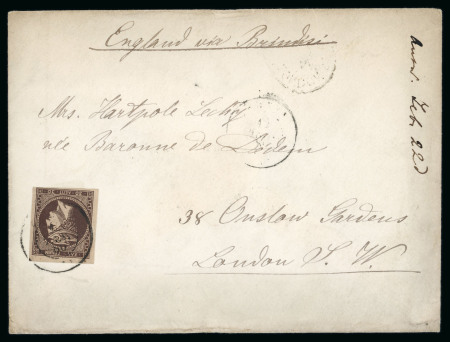 England via Brindisi
Mrs. Hartpole Lecky
née Baronne de Dedem
38 Onslow Gardens
London S. W.
Answ. Feb. 22d